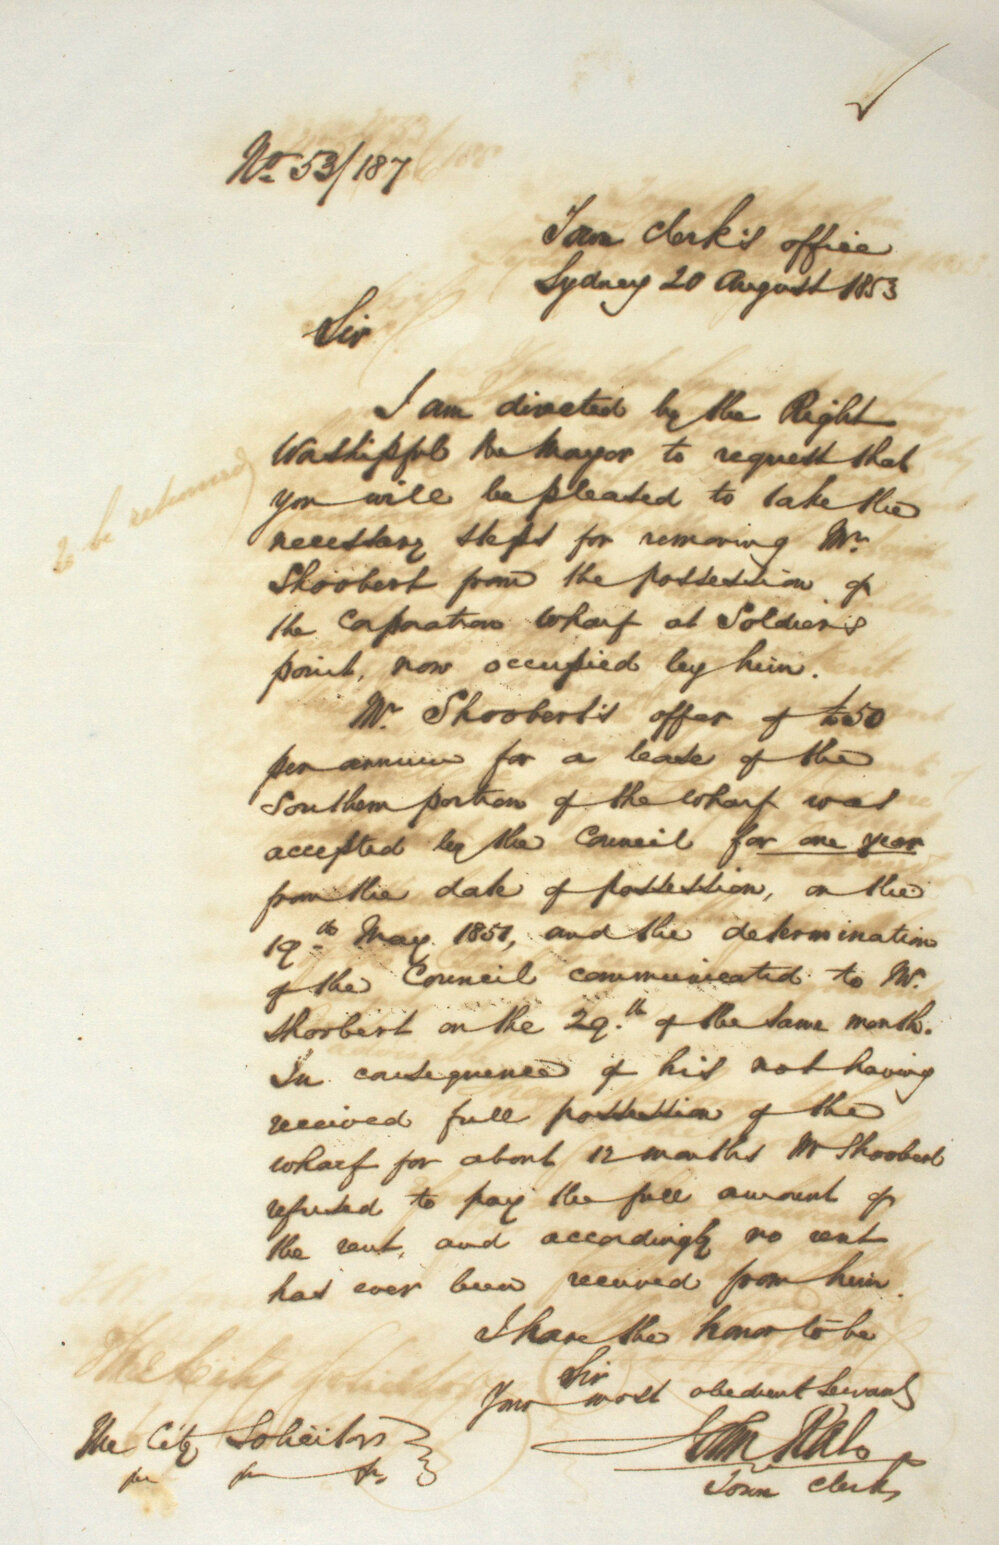 No. 53/187
Town Clerk's office
Sydney 20 August 1853
Sir
I am directed by the Right
Worshipful the Mayor to request that
you will be pleased to take the
to be returned
necessary steps for removing Mr.
Shoobert from the possession of
the Corporation Wharf at Soldier's
point, now occupied by him.
Mr. Shoobert's offer of £50
per annum for a lease of the
Southern portion of the wharf was
accepted by the Council for one year
from the date of possession, on the
19th May 1851, and the determination
of the Council communicated to Mr.
Shoobert on the 29.th of the same month.
In consequence of his not having
received full possession of the
wharf for about 12 months Mr Shoobert
refused to pay the full amount of
the rent, and accordingly no rent
has ever been received from him.
I have the honor to be
Sir
Your most obedient Servant
The City Solicitor
Town Clerk